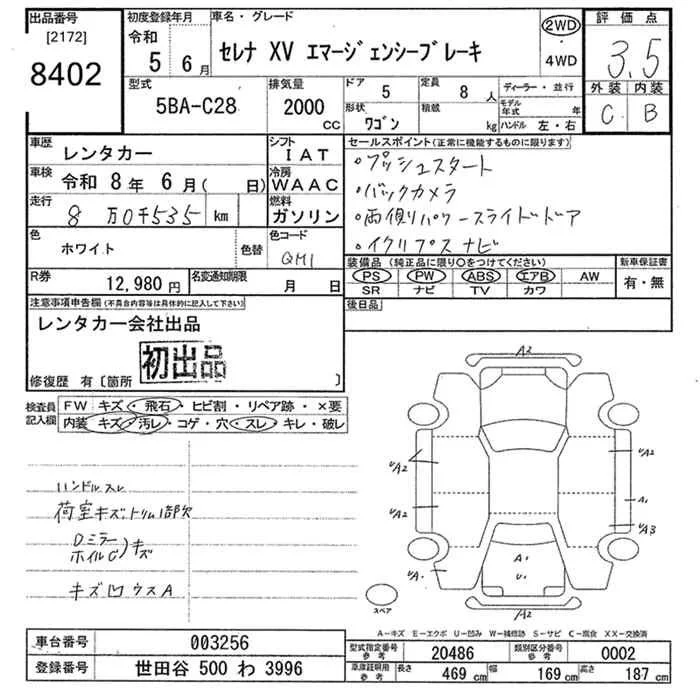 出品番号
[2172]
8402
初度登録年月
令和
5 6月
車名・グレード
セレナ XV エマージェンシーブレーキ
2WD
・
4WD
評価点
3.5
外装 内装
C B
型式
5BA-C28
排気量
2000
CC
ドア
5
定員
8 人
形状
ワゴン
積載
kg
ディーラー・並行
モデル年式 年
ハンドル 左・右
車歴
レンタカー
シフト
IAT
車検
令和 8年 6月( 日)
冷房
WAAC
走行
8万0千535 km
燃料
ガソリン
色
ホワイト
色替
色コード
QM1
R券
12,980円
名変通知期限
月 日
セールスポイント(正常に機能するものに限ります)
・プッシュスタート
・バックカメラ
・両側パワースライドドア
・イクリプスナビ
装備品(純正品に限り〇をつけてください)
PS PW ABS エアB AW
SR ナビ TV カワ
新車保証書
有・無
後日品
注意事項申告欄(不具合内容等は具体的に記入して下さい)
レンタカー会社出品
初出品
修復歴 有〔箇所 〕
検査員記入欄
FW キズ・飛石・ヒビ割・リペア跡・×要
内装 キズ・汚レ・コゲ・穴・スレ・キレ・破レ
ハンドルスレ
荷室キズ:トリム1部欠
Dミラー
ホイルC)キズ
キズ凹ウスA
A2
UA2
UA2
UA.
UA2
A1
UA3
A1
U1
A2
スペア
A-キズ E-エクボ U-凹み W-補修跡 S-サビ C-腐食 XX-交換済
車台番号
003256
登録番号
世田谷 500 わ 3996
型式指定番号
参考
20486
類別区分番号
参考
0002
車庫証明用
参考
長さ
469 cm
幅
169 cm
高さ
187 cm